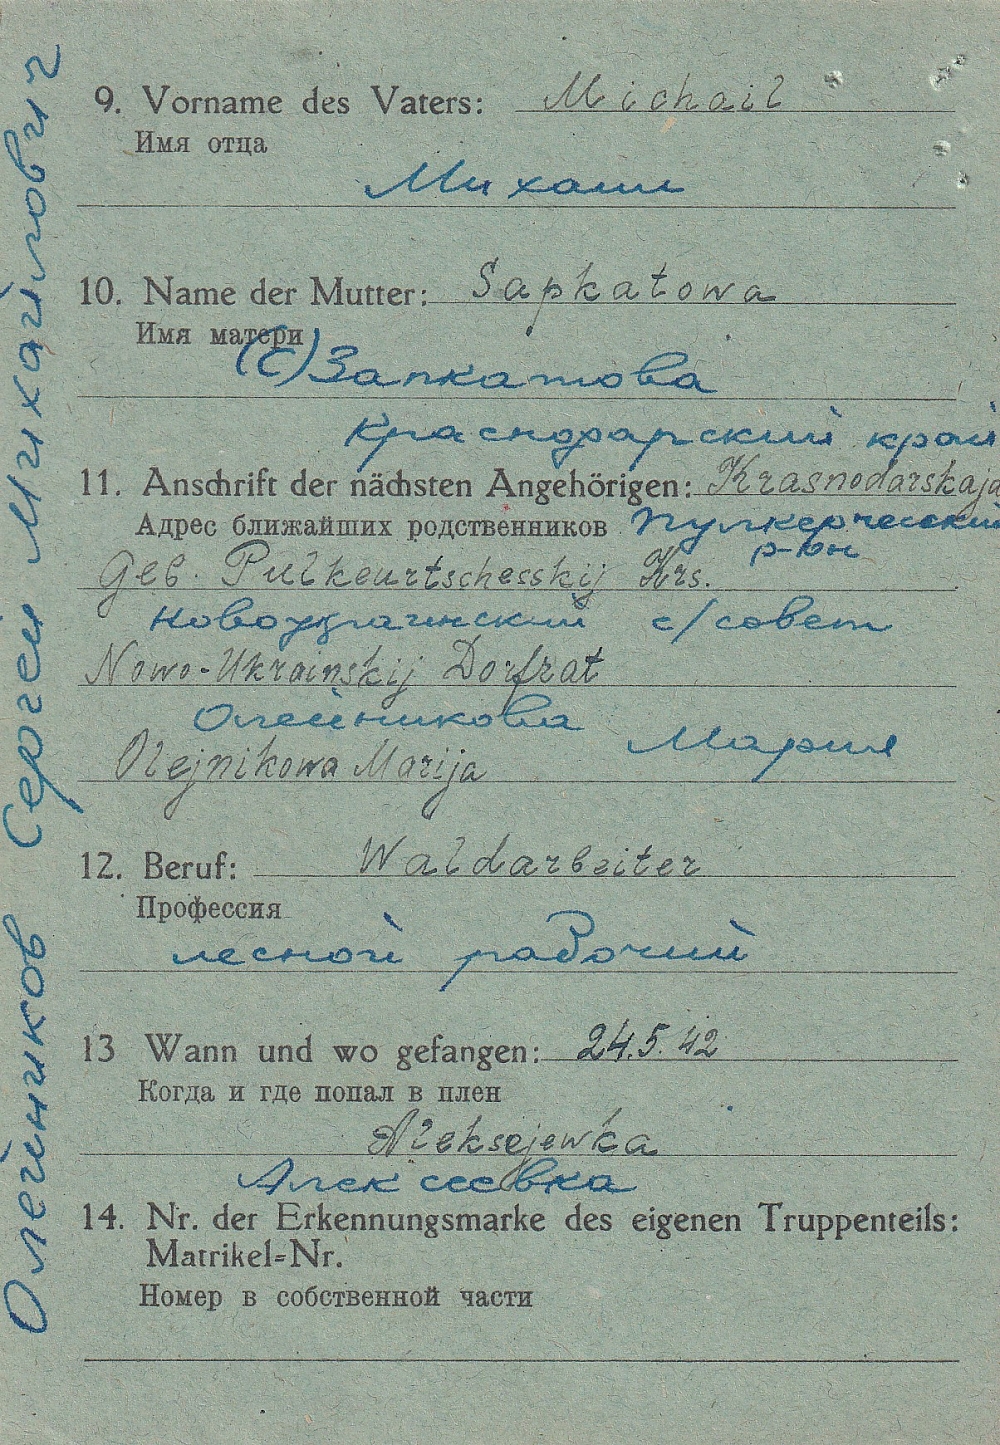 9. Vorname des Vaters: Michail
Имя отца
Михаил
10. Name der Mutter: Sapkatowa
Имя матери
(С) Запкатова
Краснодарский край
11. Anschrift der nächsten Angehörigen: Krasnodarskaja
Адрес ближайших родственников Пулкерческий
р-он
Geb. Pulkeurtschesskij Krs.
Новоукраинский с/совет
Nowo-Ukrainskij Dorfrat
Олейникова Мария
Olejnikowa Marija
12. Beruf: Waldarbeiter
Профессия
лесной рабочий
13 Wann und wo gefangen: 24.5.42
Когда и где попал в плен
Aleksejewka
Алексеевка
14. Nr. der Erkennungsmarke des eigenen Truppenteils:
Matrikel-Nr.
Номер в собственной части
Олейников Сергей Михайлович